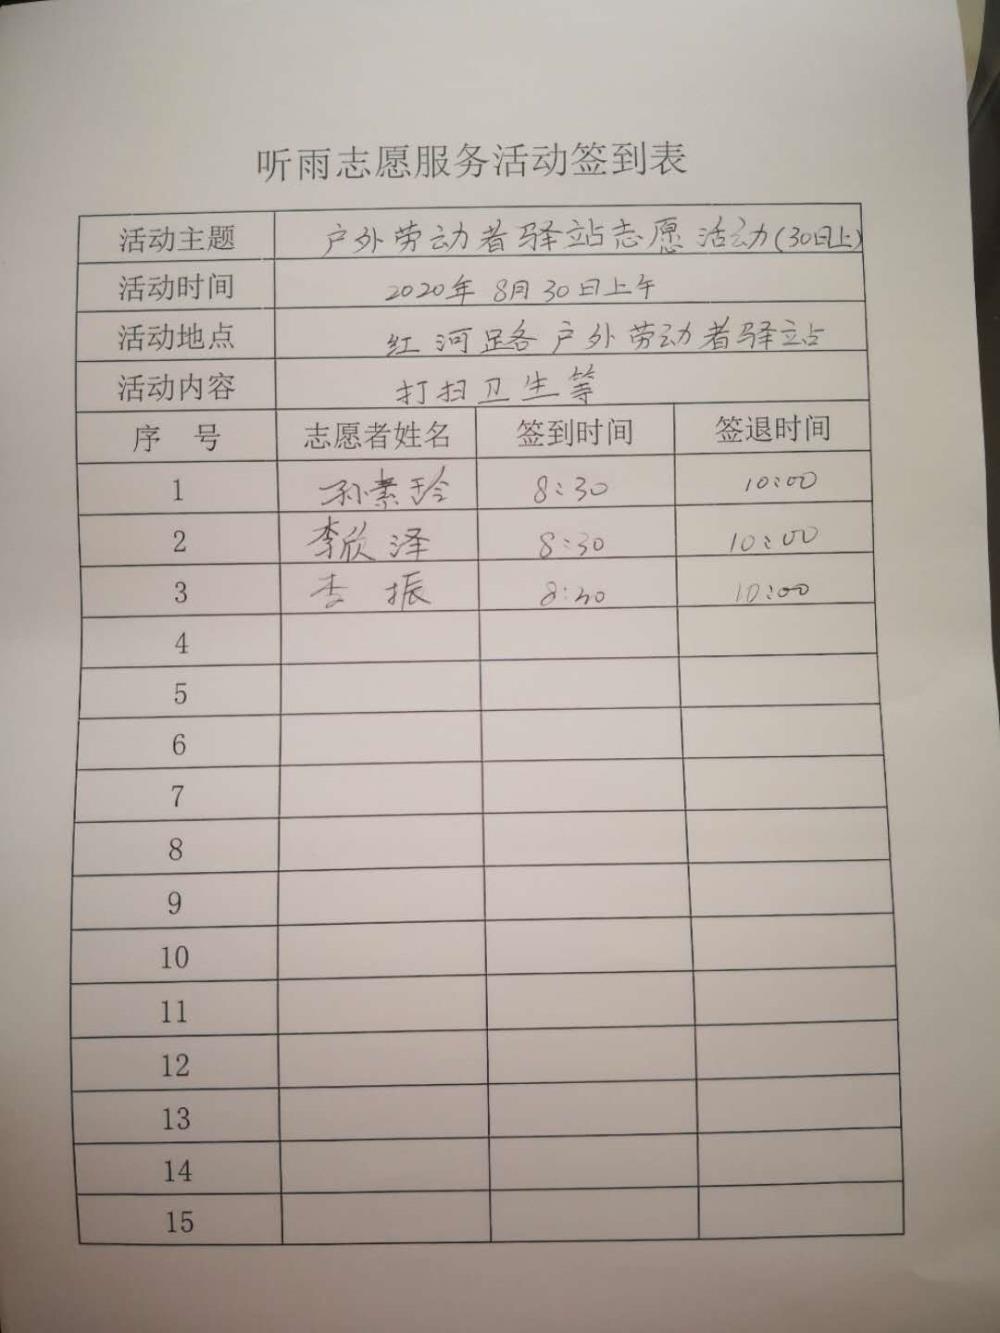 听雨志愿服务活动签到表
活动主题 户外劳动者驿站志愿活动(30日上)
活动时间 2020年8月30日上午
活动地点 红河路户外劳动者驿站
活动内容 打扫卫生等
序 号 志愿者姓名 签到时间 签退时间
1 孙素玲 8:30 10:00
2 李欣泽 8:30 10:00
3 李振 8:30 10:00
4
5
6
7
8
9
10
11
12
13
14
15